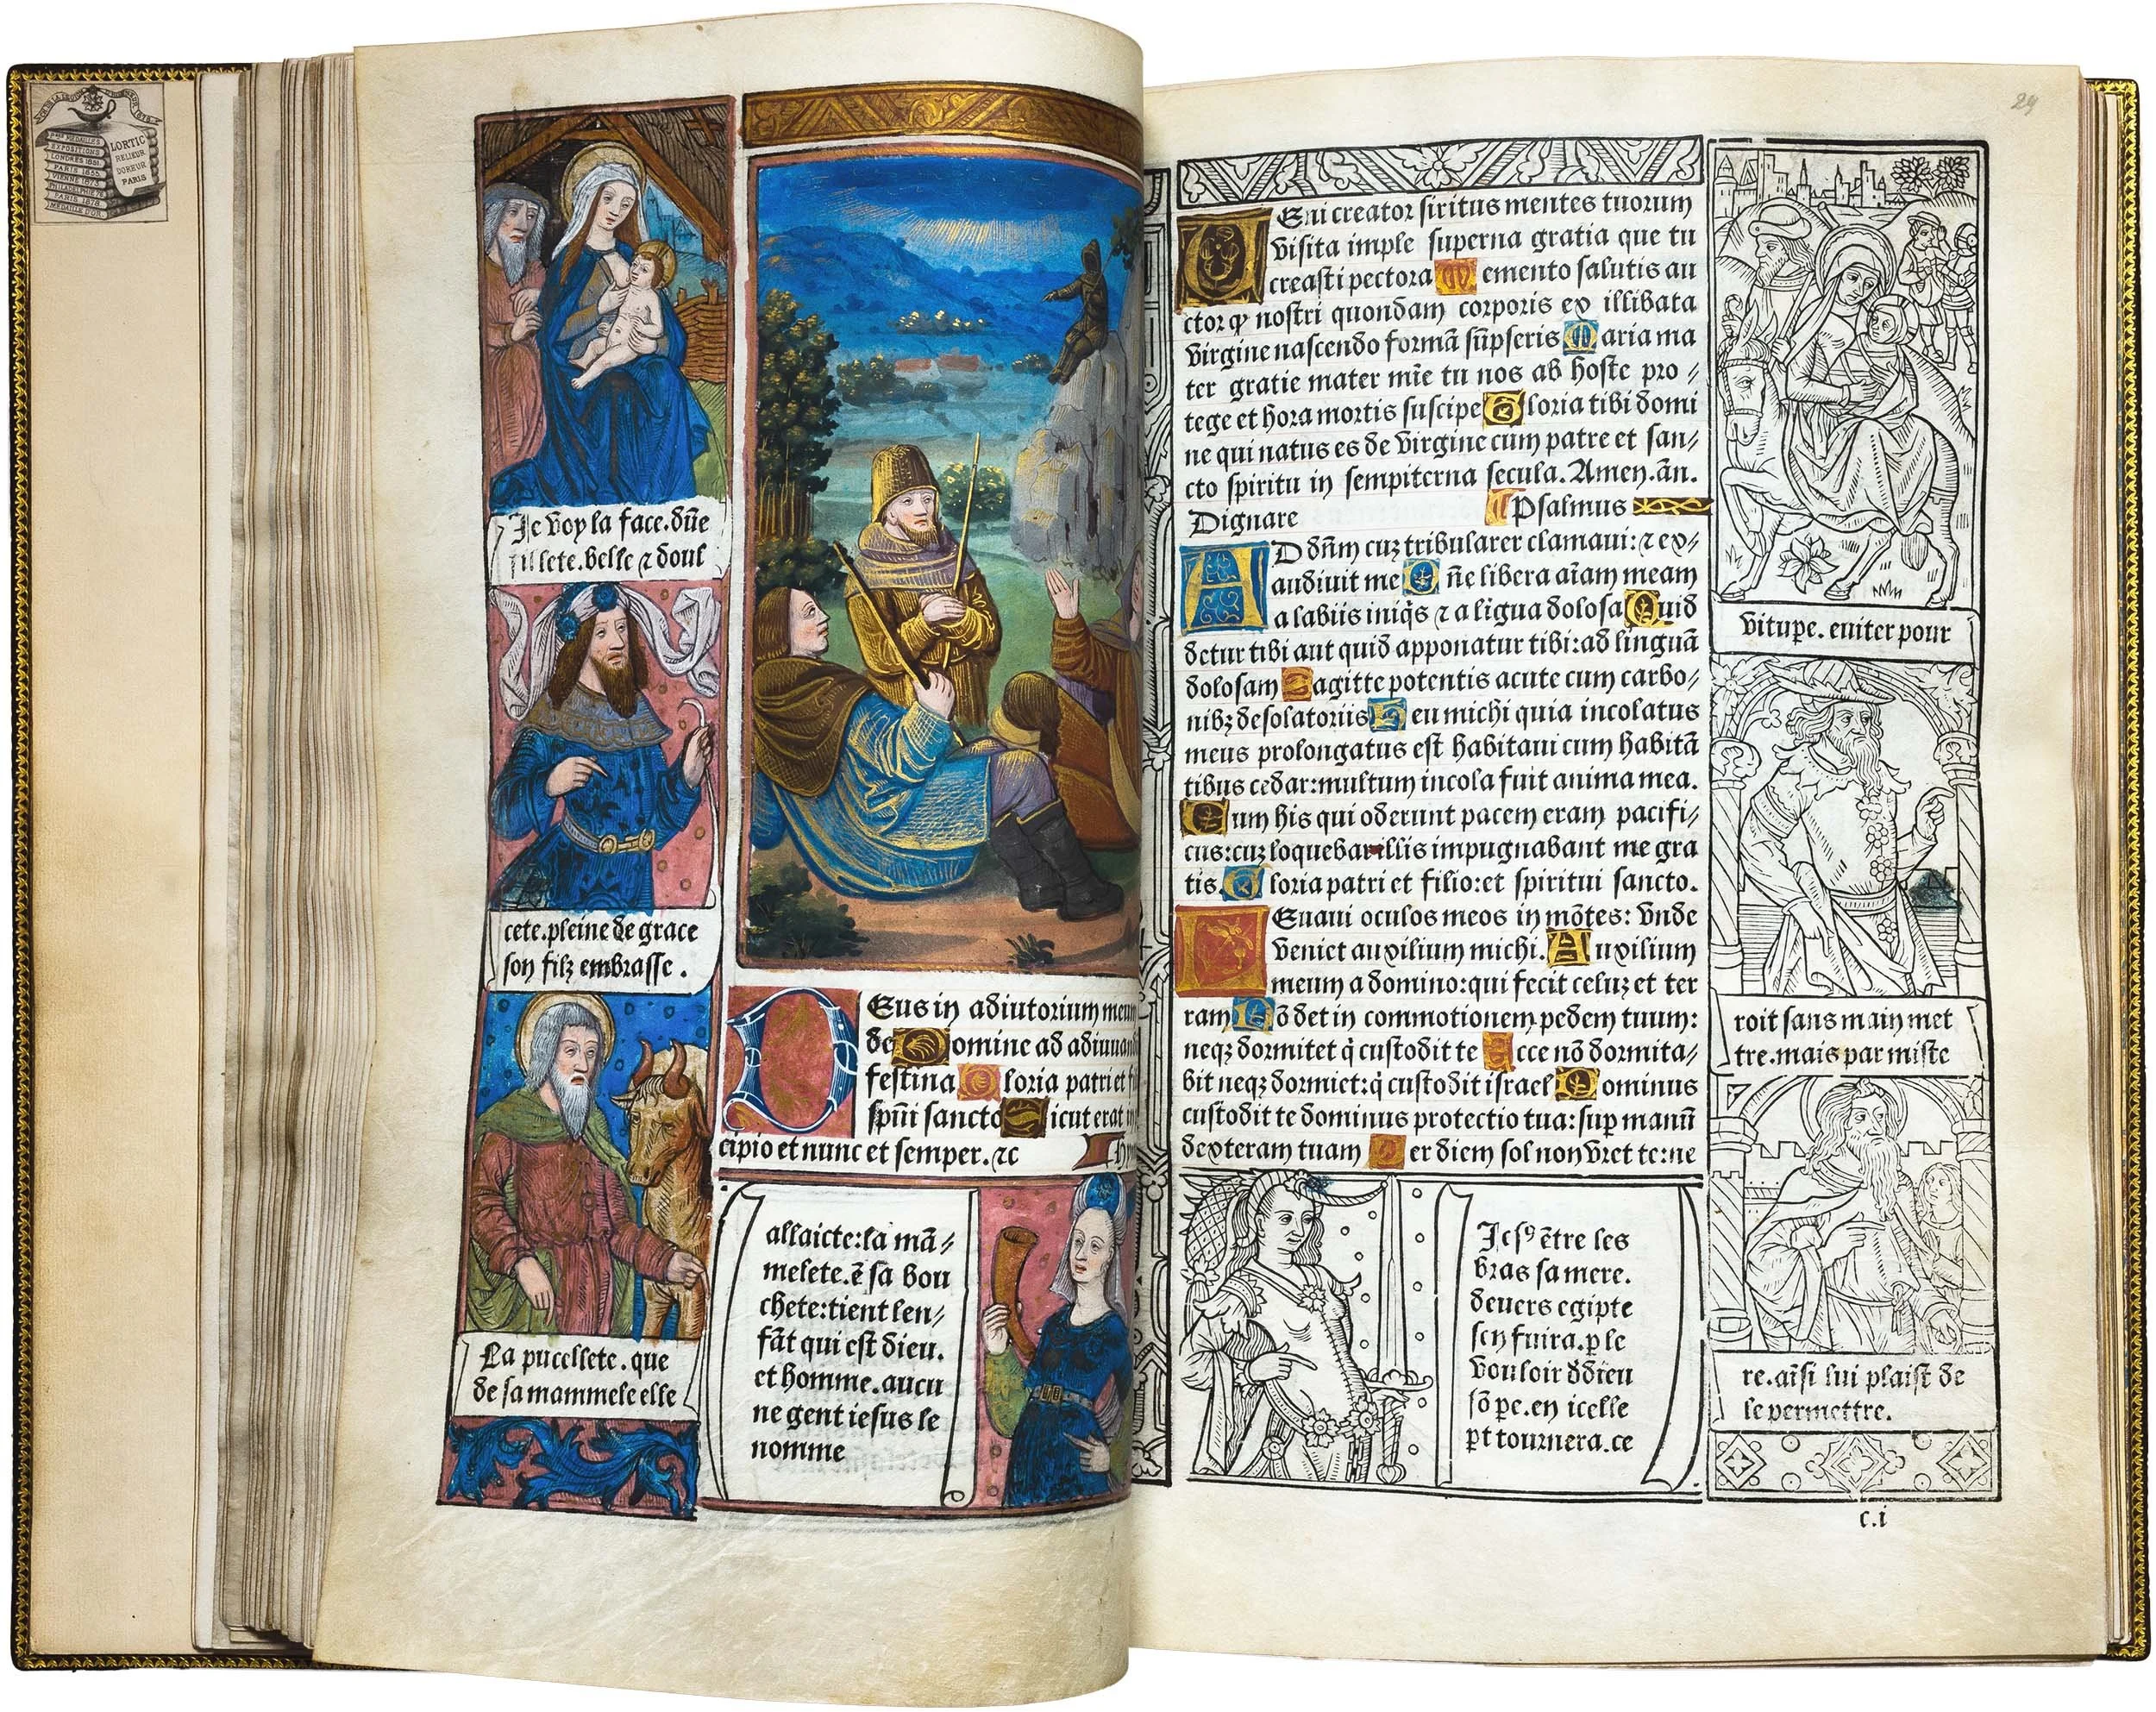 LORTIC
RELIEUR
DOREUR
PARIS
EXPOSITIONS
LONDRES 1851
PARIS 1855
VIENNE 1873
PHILADELPHIE 76
PARIS 1878
MEDAILLE D'OR
Je voy la face. dũe
fillete. belle ⁊ doul
cete. pleine de grace
son filz embrasse.
La pucellete. que
de sa mammele elle
Eus in adiutorium meum
de Domine ad adiuuand
festina Gloria patri et f
spũi sancto Sicut erat
cipio et nunc et semper. ⁊c
allaicte: la mã⸗
melete. ẽ sa bou
chete: tient len⸗
fãt qui est dieu.
et homme. aucu
ne gent iesus le
nomme
29
VEni creator spiritus mentes tuorum
visita imple superna gratia que tu
creasti pectora Memento salutis au
ctor qꝫ nostri quondam corporis ex illibata
virgine nascendo formã sũpseris Maria ma
ter gratie mater mĩe tu nos ab hoste pro⸗
tege et hora mortis suscipe Gloria tibi domi
ne qui natus es de virgine cum patre et san⸗
cto spiritu in sempiterna secula. Amen. ãn.
Dignare Psalmus
AD dñm cuꝫ tribularer clamaui: ⁊ ex⸗
audiuit me Dñe libera aĩam meam
a labiis iniq̃s ⁊ a ligua dolosa Quid
detur tibi aut quid apponatur tibi: ad linguã
dolosam Sagitte potentis acute cum carbo⸗
nibꝫ desolatoriis Heu michi quia incolatus
meus prolongatus est habitaui cum habitã
tibus cedar: multum incola fuit anima mea.
Cum his qui oderunt pacem eram pacifi⸗
cus: cuꝫ loquebar illis impugnabant me gra
tis. Gloria patri et filio: et spiritui sancto.
LEuaui oculos meos in mõtes: vnde
veniet auxilium michi. Auxilium
meum a domino: qui fecit celuꝫ et ter
ram Nõ det in commotionem pedem tuum:
neqꝫ dormitet q̃ custodit te Ecce nõ dormita⸗
bit neqꝫ dormiet: q̃ custodit israel Dominus
custodit te dominus protectio tua: sup manũ
dexteram tuam Per diem sol non vret te: ne
Jesꝰ ẽtre les
bras sa mere.
deuers egipte
sen fuira. p le
vouloir d dieu
sõ pe. en icelle
pt tournera. ce
vitupe. euiter pour
roit sans main met
tre. mais par miste
re. aĩsi lui plaist de
le permettre.
c.i